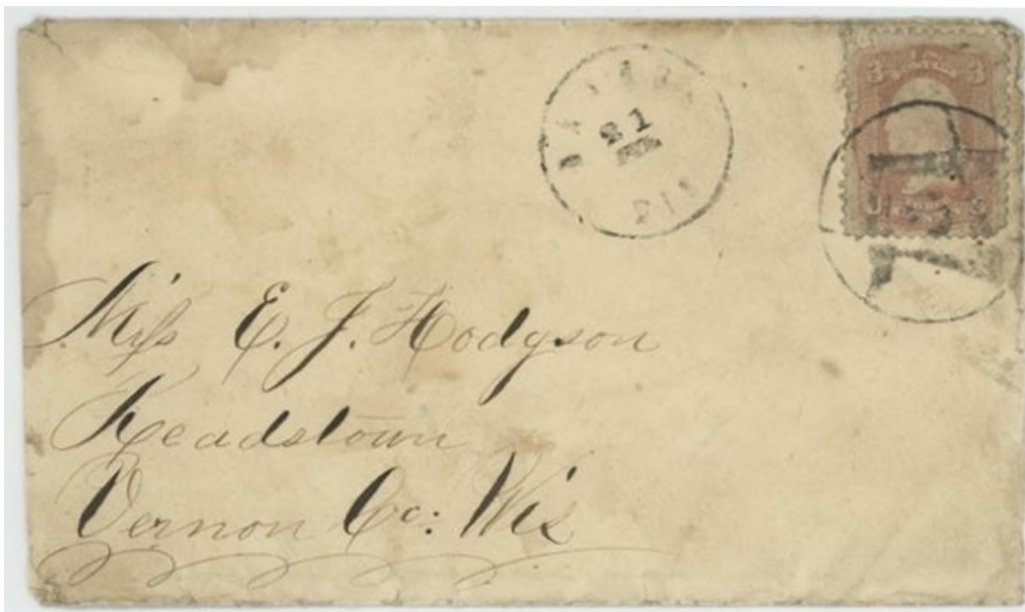 21
3 3
U S
Miss E. J. Hodgson
Readstown
Vernon Co: Wis